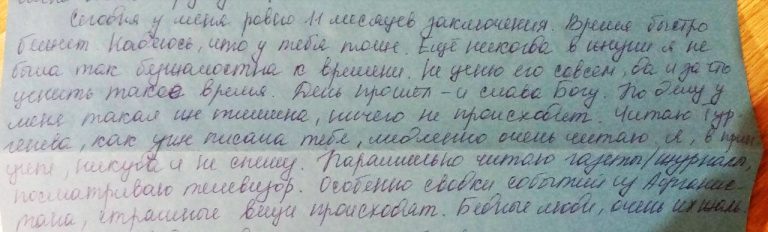 Сегодня у меня ровно 11 месяцев заключения. Время быстро
бежит. Надеюсь, что у тебя тоже. Ещё никогда в жизни я не
была так безжалостна к времени. Не ценю его совсем, да и за что
ценить такое время. День прошёл - и слава Богу. По делу у
меня такая же тишина, ничего не происходит. Читаю Тур-
генева, как уже писала тебе, медленно очень читаю. Я, в прин-
ципе, никуда и не спешу. Параллельно читаю газеты/журналы,
посматриваю телевизор. Особенно сводки событий из Афганис-
тана, страшные вещи происходят. Бедные люди, очень их жаль.